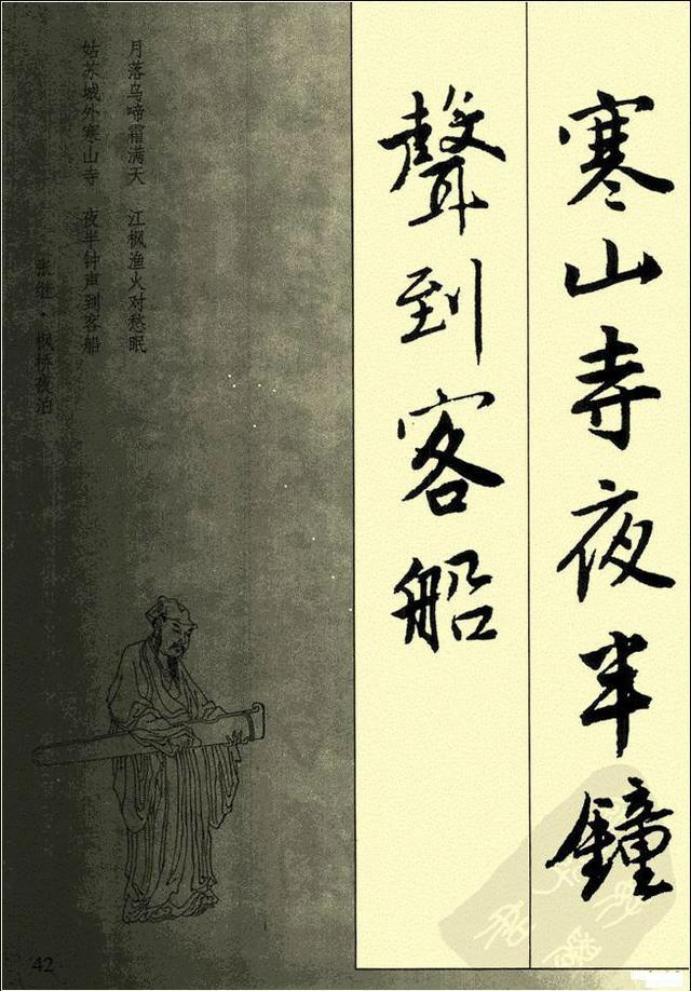 寒山寺夜半鐘
聲到客船
月落乌啼霜满天　江枫渔火对愁眠
姑苏城外寒山寺　夜半钟声到客船
张继·枫桥夜泊
42